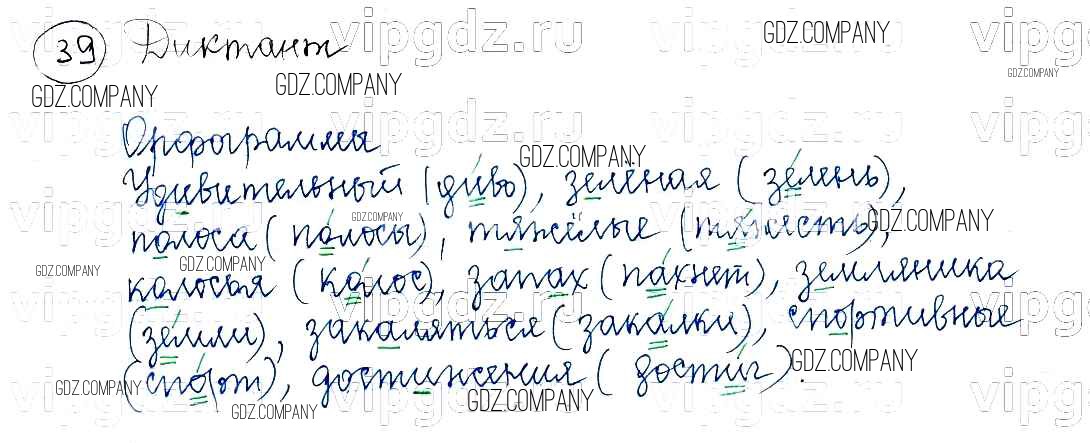 39 Диктант
Орфограммы
Удивительный (диво), зелёная (зелень),
полоса (полосы), тяжёлые (тяжесть),
колосья (колос), запах (пахнет), земляника
(земли), закаляться (закалки), спортивные
(спорт), достижения (достиг).
vipgdz.ru
GDZ.COMPANY